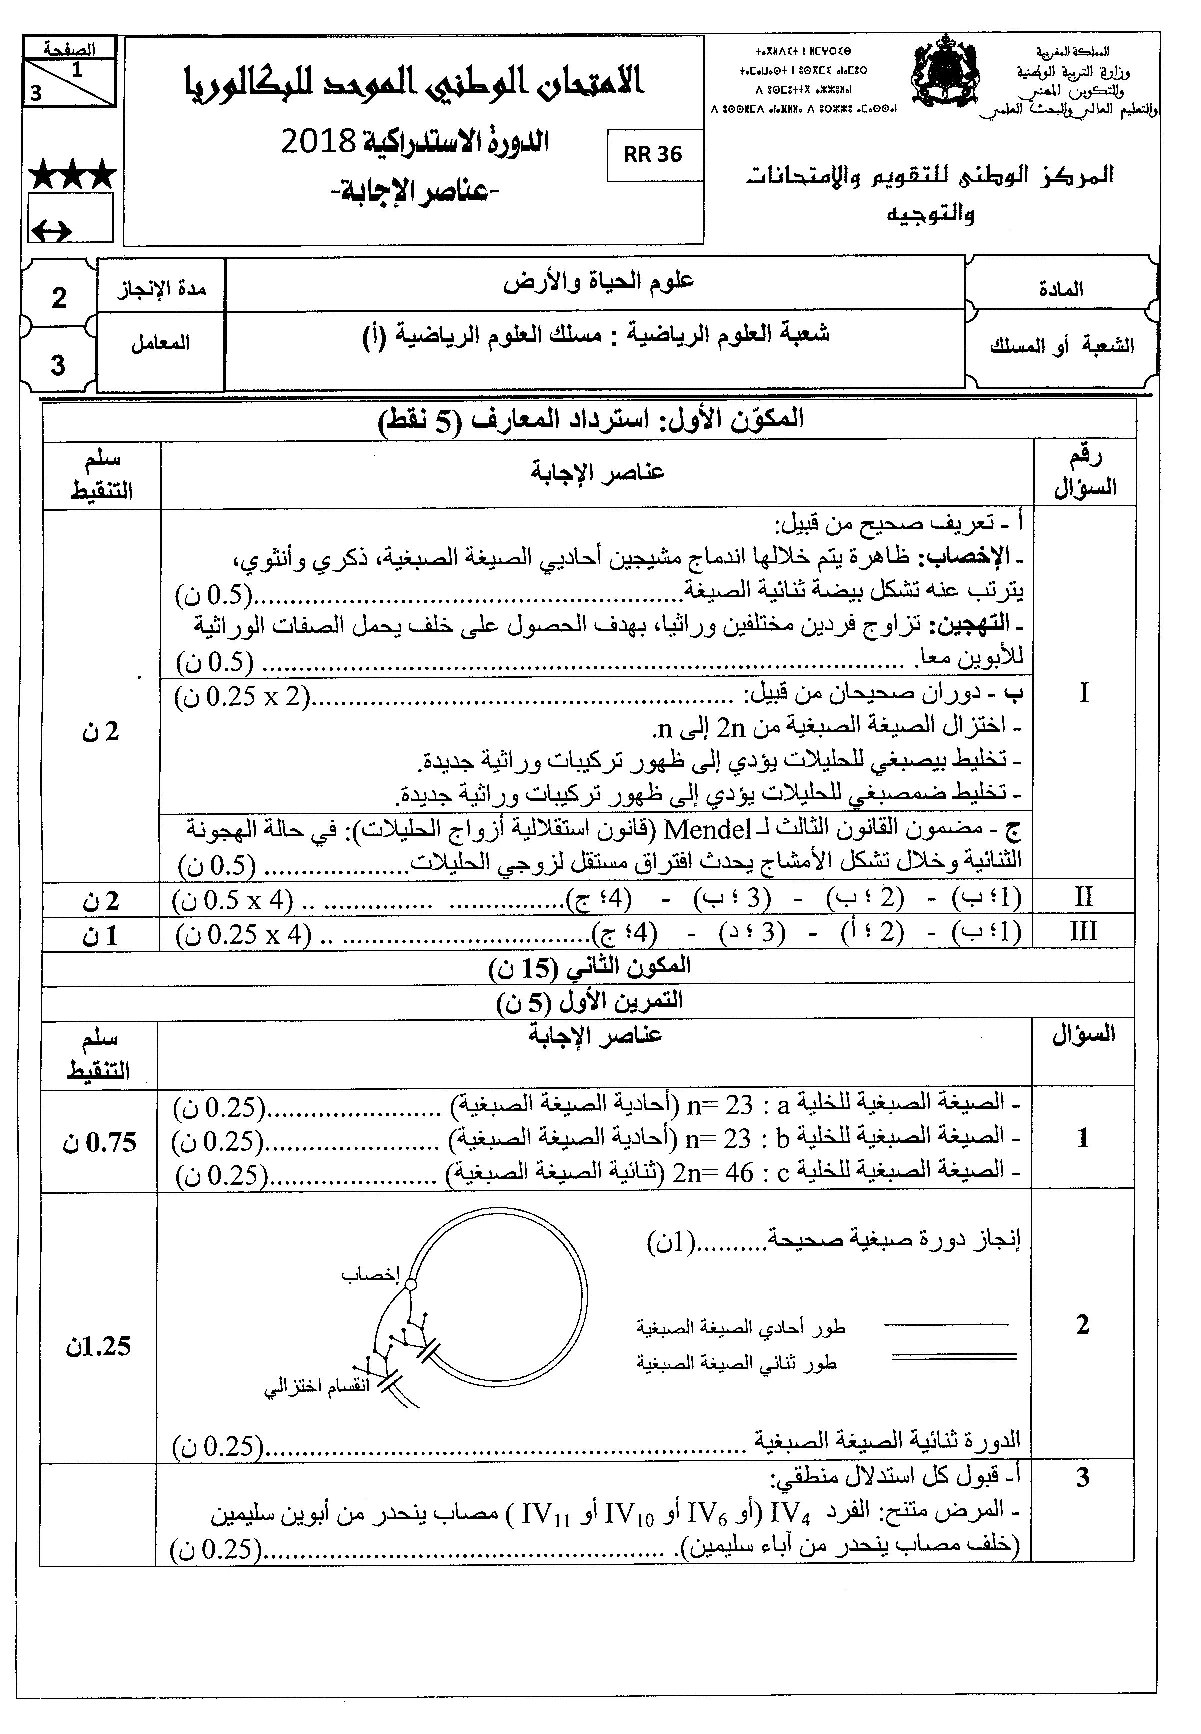 الصفحة
1
3
الامتحان الوطني الموحد للبكالوريا
الدورة الاستدراكية 2018
-عناصر الإجابة-
RR 36
المملكة المغربية
وزارة التربية الوطنية
والتكوين المهني
والتعليم العالي والبحث العلمي
المركز الوطني للتقويم والامتحانات
والتوجيه
المادة
علوم الحياة والأرض
مدة الإنجاز
2
الشعبة أو المسلك
شعبة العلوم الرياضية : مسلك العلوم الرياضية (أ)
المعامل
3
المكوّن الأول: استرداد المعارف (5 نقط)
رقم السؤال
عناصر الإجابة
سلم التنقيط
I
أ - تعريف صحيح من قبيل:
- الإخصاب: ظاهرة يتم خلالها اندماج مشيجين أحاديي الصيغة الصبغية، ذكري وأنثوي،
يترتب عنه تشكل بيضة ثنائية الصيغة......................................................(0.5 ن)
- التهجين: تزاوج فردين مختلفين وراثيا، بهدف الحصول على خلف يحمل الصفات الوراثية
للأبوين معا. ................................................................................ (0.5 ن)
ب - دوران صحيحان من قبيل: .....................................................(2 x 0.25 ن)
- اختزال الصيغة الصبغية من 2n إلى n.
- تخليط بيصبغي للحليلات يؤدي إلى ظهور تركيبات وراثية جديدة.
- تخليط ضمصبغي للحليلات يؤدي إلى ظهور تركيبات وراثية جديدة.
ج - مضمون القانون الثالث لـ Mendel (قانون استقلالية أزواج الحليلات): في حالة الهجونة
الثنائية وخلال تشكل الأمشاج يحدث افتراق مستقل لزوجي الحليلات.................... (0.5 ن)
2 ن
II
(1؛ ب) - (2 ؛ ب) - (3 ؛ ب) - (4؛ ج)............................... .. (4 x 0.5 ن)
2 ن
III
(1؛ ب) - (2 ؛ أ) - (3 ؛ د) - (4؛ ج)............................... .. (4 x 0.25 ن)
1 ن
المكون الثاني (15 ن)
التمرين الأول (5 ن)
السؤال
عناصر الإجابة
سلم التنقيط
1
- الصيغة الصبغية للخلية a : n= 23 (أحادية الصيغة الصبغية) ......................(0.25 ن)
- الصيغة الصبغية للخلية b : n= 23 (أحادية الصيغة الصبغية) ......................(0.25 ن)
- الصيغة الصبغية للخلية c : 2n= 46 (ثنائية الصيغة الصبغية) ......................(0.25 ن)
0.75 ن
2
إنجاز دورة صبغية صحيحة..........(1ن)
إخصاب
طور أحادي الصيغة الصبغية
طور ثنائي الصيغة الصبغية
انقسام اختزالي
الدورة ثنائية الصيغة الصبغية ............................................................(0.25 ن)
1.25ن
3
أ- قبول كل استدلال منطقي:
- المرض متنح: الفرد IV4 (أو IV6 أو IV10 أو IV11 ) مصاب ينحدر من أبوين سليمين
(خلف مصاب ينحدر من آباء سليمين). ..................................................(0.25 ن)